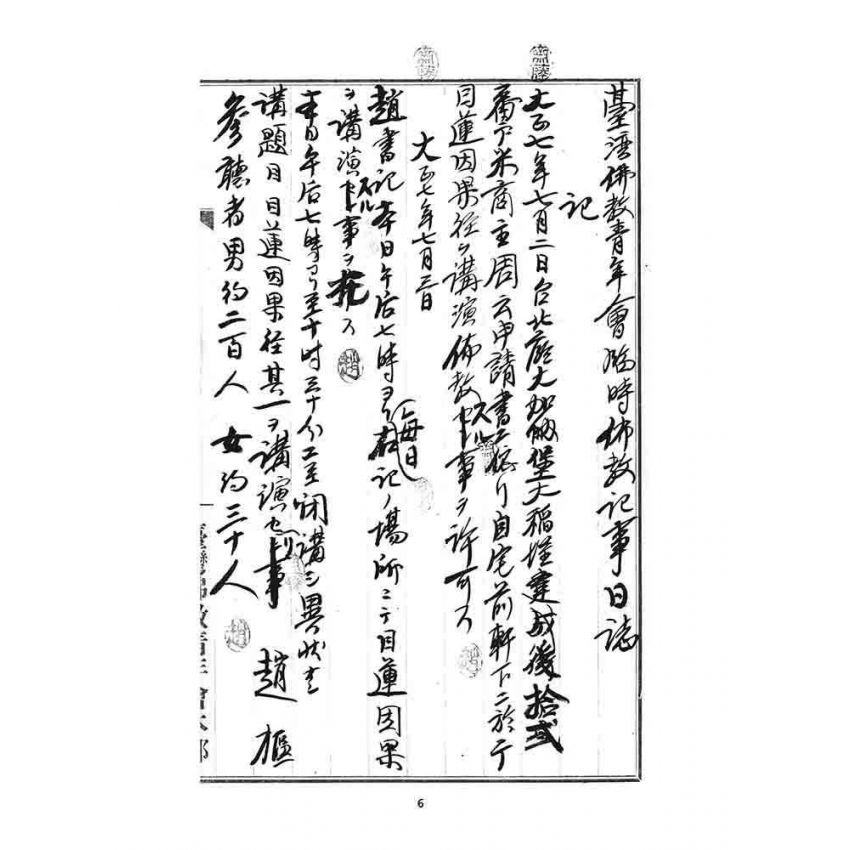 臺湾佛教青年會臨時佛教記事日誌
記
大正七年七月二日台北廳大加蚋堡大稻埕建成後拾弍
番戸米商主周云申請書ニ依リ自宅前軒下ニ於テ
目蓮因果径ヲ講演佈教スル事ヲ許可ス
大正七年七月三日
趙書記本日午后七時ヨリ毎日右記ノ場所ニテ目蓮因果
ヲ講演スル事ヲ托ス
本日午后七時ヨリ至十時三十分ニ至閉講シ異状無
講題目目蓮因果径其一ヲ講演
事 趙枢
參聽者男約二百人 女約三十人
齋藤
齋藤
趙
6